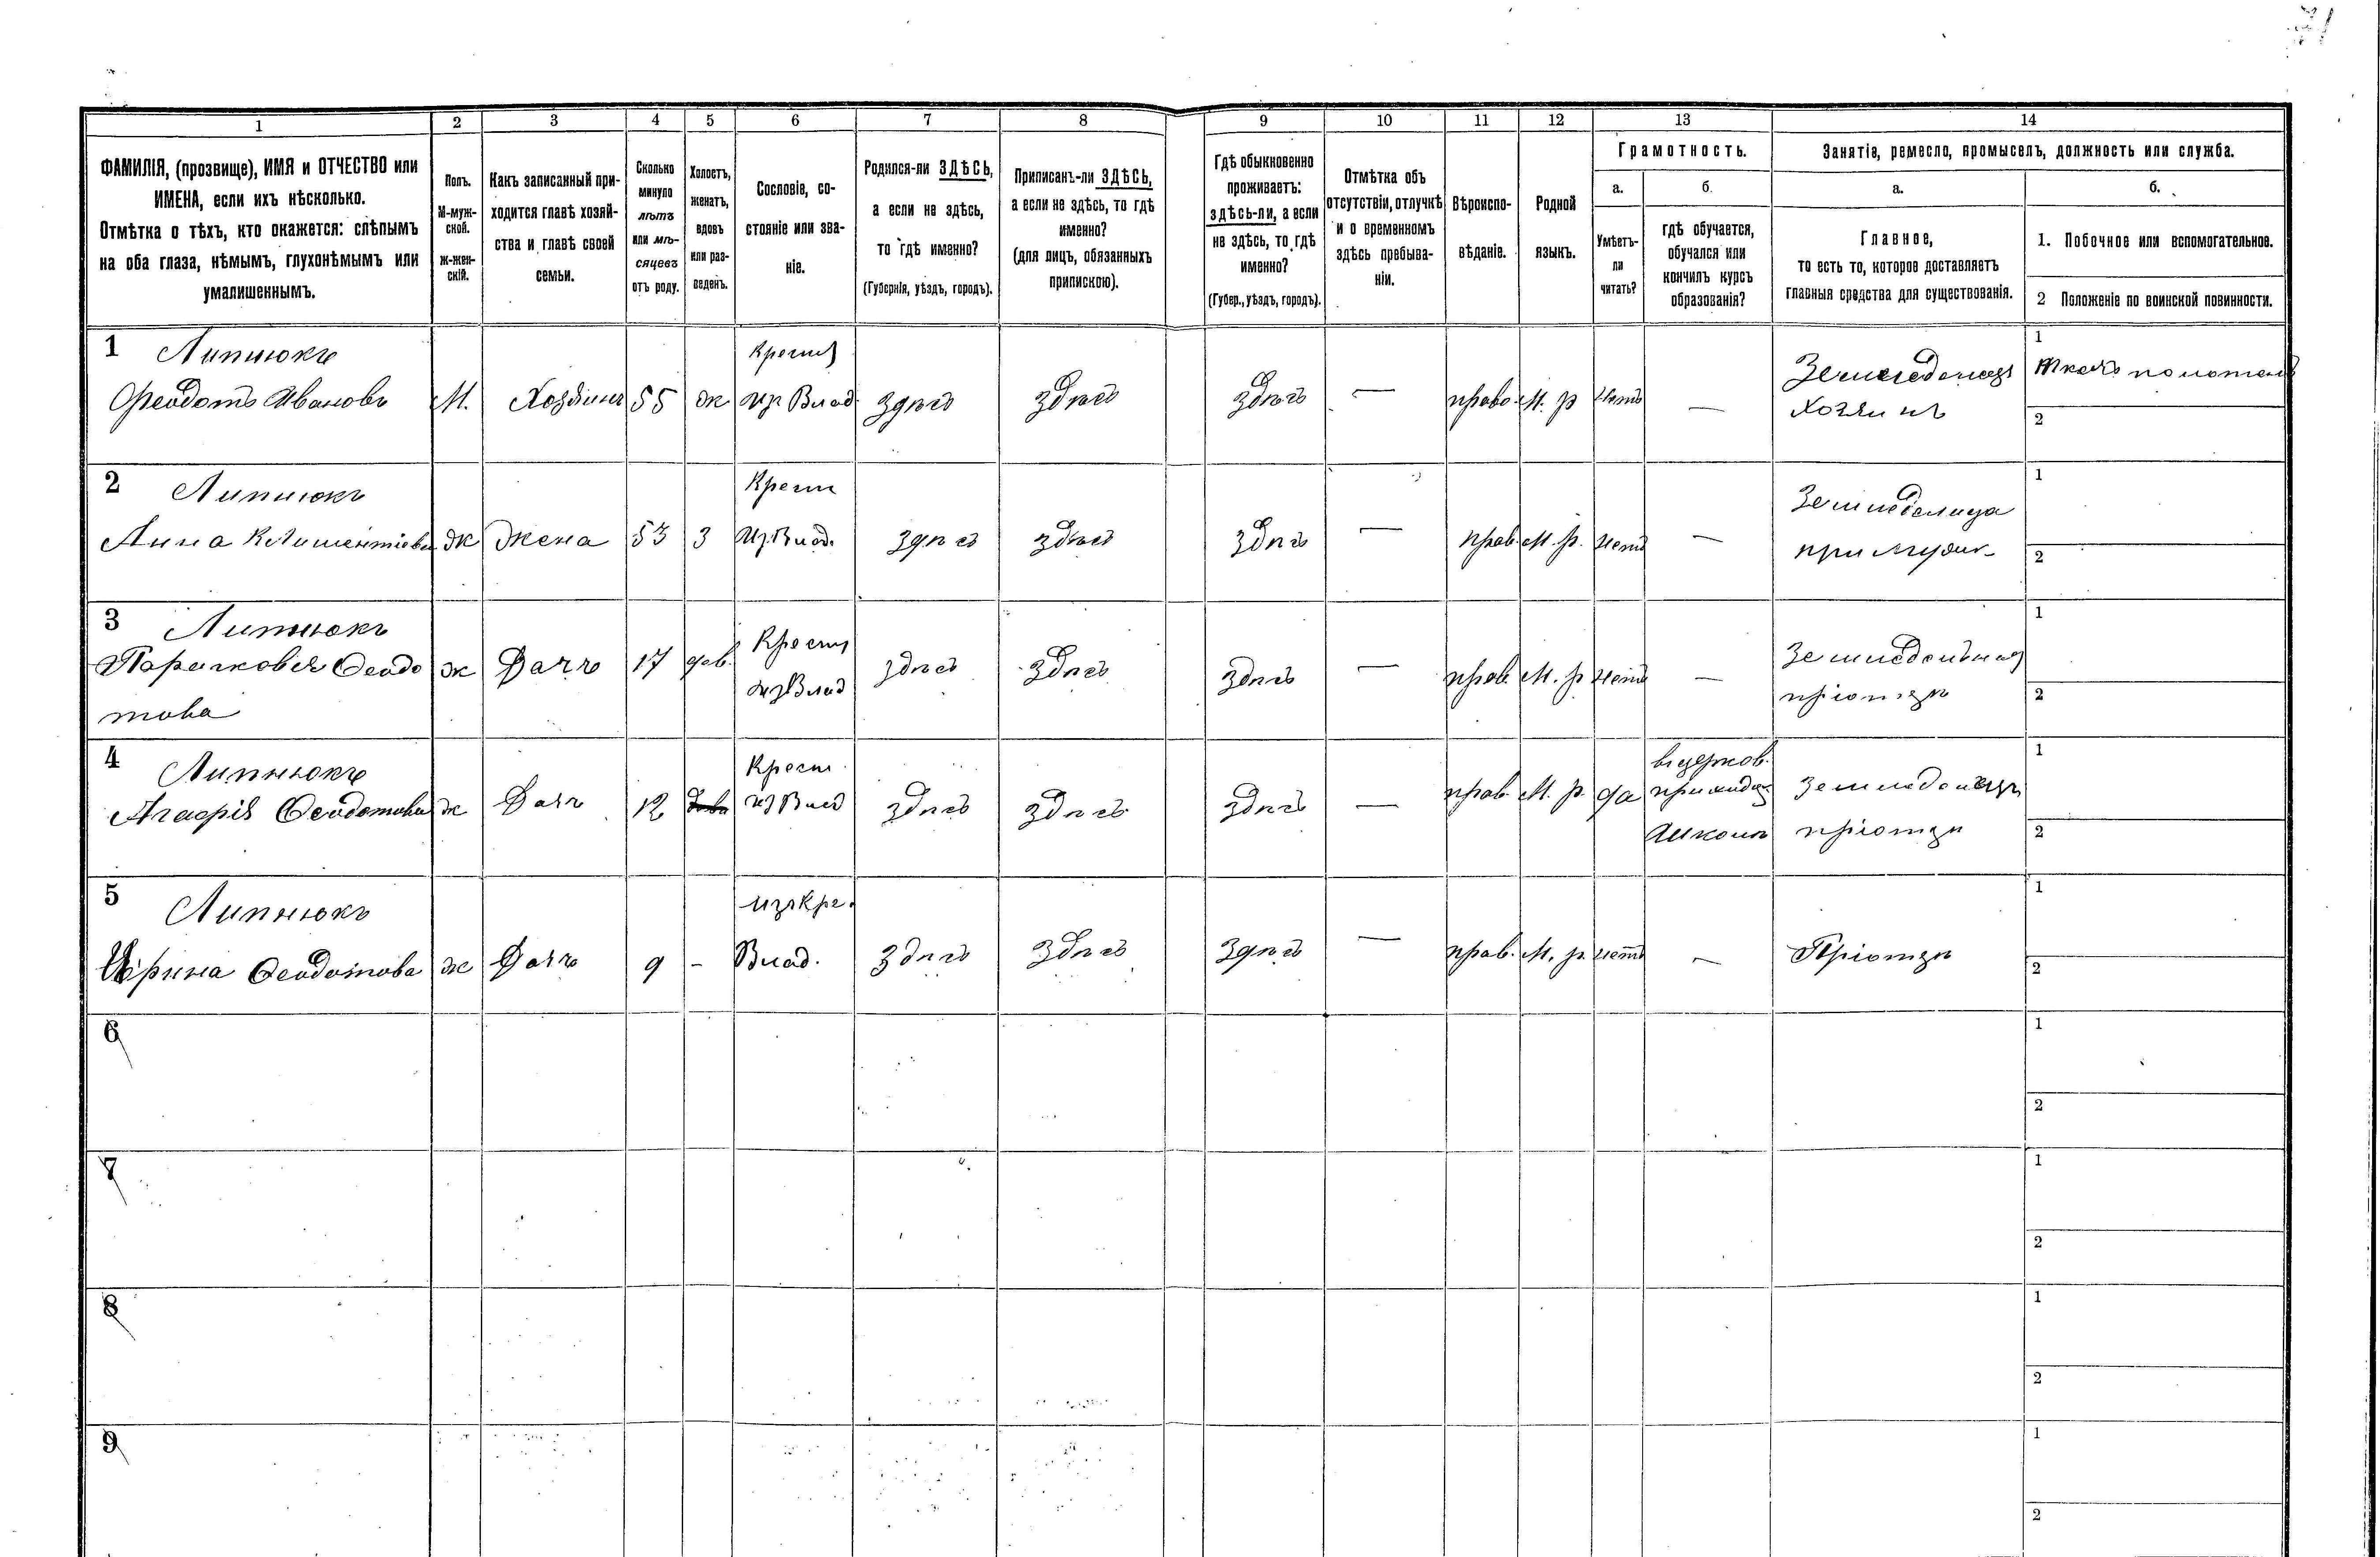 1 2 3 4 5 6 7 8 9 10 11 12 13 14
ФАМИЛІЯ, (прозвище), ИМЯ и ОТЧЕСТВО или
ИМЕНА, если ихъ нѣсколько.
Отмѣтка о тѣхъ, кто окажется: слѣпымъ
на оба глаза, нѣмымъ, глухонѣмымъ или
умалишеннымъ.
Полъ.
М-муж-
ской.
ж-жен-
скій.
Какъ записанный при-
ходится главѣ хозяй-
ства и главѣ своей
семьи.
Сколько
минуло
лѣтъ
или мѣ-
сяцевъ
отъ роду.
Холостъ,
женатъ,
вдовъ
или раз-
веденъ.
Сословіе, со-
стояніе или зва-
ніе.
Родился-ли ЗДѢСЬ,
а если не здѣсь,
то гдѣ именно?
(Губернія, уѣздъ, городъ).
Приписанъ-ли ЗДѢСЬ,
а если не здѣсь, то гдѣ
именно?
(для лицъ, обязанныхъ
припискою).
Гдѣ обыкновенно
проживаетъ:
здѣсь-ли, а если
не здѣсь, то гдѣ
именно?
(Губер., уѣздъ, городъ).
Отмѣтка объ
отсутствіи, отлучкѣ
и о временномъ
здѣсь пребыва-
ніи.
Вѣроиспо-
вѣданіе.
Родной
языкъ.
Грамотность.
а.
Умѣетъ-
ли
читать?
б.
гдѣ обучается,
обучался или
кончилъ курсъ
образованія?
Занятіе, ремесло, промыселъ, должность или служба.
а.
Главное,
то есть то, которое доставляетъ
главныя средства для существованія.
б.
1. Побочное или вспомогательное.
2 Положеніе по воинской повинности.
1 Липнюкъ
Феодотъ Ивановъ
М.
Хозяинъ
55
ж
Крестя
из Влад
здѣсь
здѣсь
здѣсь
—
право.
М. р
нетъ
—
Земледелецъ
Хозяинъ
1 Ткачъ полотенъ
2
2 Липнюкъ
Анна Климентіева
ж
Жена
53
З
Крест
Из Влад.
здѣсь
здѣсь
здѣсь
—
прав.
М. р.
нетъ
—
Земледелица
при муже
1
2
3 Липнюкъ
Парасковея Феодо
това
ж
Дочь
17
дев.
Крестя
из Влад
здѣсь
здѣсь
здѣсь
—
прав.
М. р
нетъ
—
при отцѣ
1
2
4 Липнюкъ
Агафія Феодотова
ж
Дочь
12
Крест.
из Влад
здѣсь
здѣсь
здѣсь
—
прав.
М. р.
да
вцерков.
приходск
школѣ
при отцѣ
1
2
5 Липнюкъ
Ирина Феодотова
ж
Дочь
9
-
изъ кре.
Влад.
здѣсь
здѣсь
здѣсь
—
прав.
М. р.
нетъ
—
При отцѣ
1
2
6
1
2
7
1
2
8
1
2
9
1
2